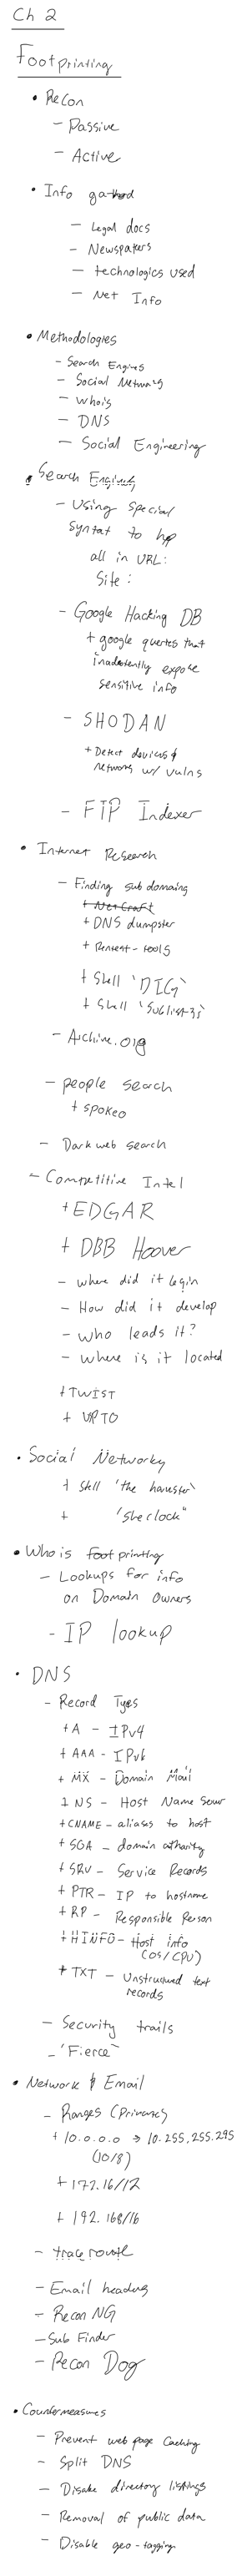 Ch 2
Footprinting
• Recon
- Passive
- Active
• Info gathered
- Legal docs
- Newspapers
- technologies used
- Net Info
• Methodologies
- Search Engines
- Social Networks
- whois
- DNS
- Social Engineering
• Search Engines
- Using special
syntax to
all in URL:
Site:
- Google Hacking DB
+ google queries that
inadvertently expose
sensitive info
- SHODAN
+ Detect devices &
Networks w/ vulns
- FTP Indexer
• Internet Research
- Finding sub domains
+ Netcraft
+ DNS dumpster
+ Pentest-tools
+ Shell 'DIG'
+ Shell 'Sublist3r'
- Archive.org
- people search
+ spokeo
- Dark web search
- Competitive Intel
+ EDGAR
+ DBB Hoover
- where did it begin
- How did it develop
- who leads it?
- where is it located
+ TWIST
+ UPTO
• Social Networking
+ Shell 'the harvester'
+ 'Sherlock"
• Whois footprinting
- Lookups for info
on Domain Owners
- IP lookup
• DNS
- Record Types
+ A - IPv4
+ AAA - IPv6
+ MX - Domain Mail
+ NS - Host Name Server
+ CNAME - aliases to host
+ SOA - domain authority
+ SRV - Service Records
+ PTR - IP to hostname
+ RP - Responsible Person
+ HINFO - Host info
(OS/CPU)
+ TXT - Unstructured text
records
- Security trails
- 'Fierce'
• Network & Email
- Ranges (Private)
+ 10.0.0.0 → 10.255.255.295
(10/8)
+ 172.16/12
+ 192.168/16
- traceroute
- Email headers
- Recon NG
- Sub Finder
- Recon Dog
• Countermeasures
- Prevent web page Caching
- Split DNS
- Disable directory listings
- Removal of public data
- Disable geo-tagging